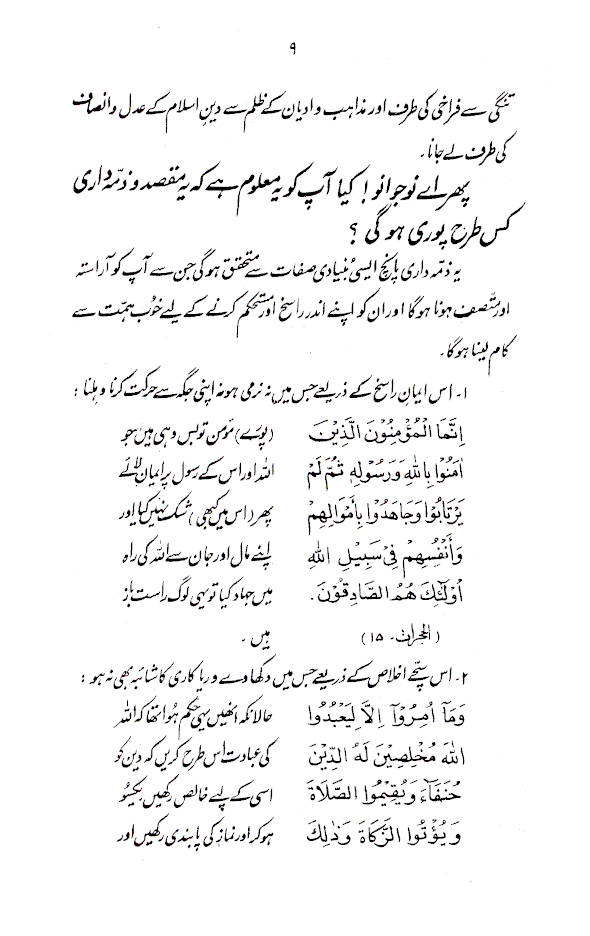 ۹
تنگی سے فراخی کی طرف اور مذاہب و ادیان کے ظلم سے دینِ اسلام کے عدل و انصاف
کی طرف لے جانا۔
پھر اے نوجوانو! کیا آپ کو یہ معلوم ہے کہ یہ مقصد و ذمّہ داری
کس طرح پوری ہو گی ؟
یہ ذمّہ داری پانچ ایسی بُنیادی صفات سے متحقق ہو گی جن سے آپ کو آراستہ
اور متّصف ہونا ہوگا اور ان کو اپنے اندر راسخ اور مستحکم کرنے کے لیے خوُب ہمّت سے
کام لینا ہو گا۔
۱۔ اس ایمانِ راسخ کے ذریعے جس میں نہ نرمی ہو نہ اپنی جگہ سے حرکت کرنا و ہلنا :
إِنَّمَا الْمُؤْمِنُونَ الَّذِيْنَ (پورے) مؤمن تو بس وہی ہیں جو
اٰمَنُوْا بِاللهِ وَرَسُوْلِهٖ ثُمَّ لَمْ اللہ اور اس کے رسول پر ایمان لائے
يَرْتَابُوْا وَجَاهَدُوْا بِأَمْوَالِهِمْ پھر (اس میں کبھی) شک نہیں کیا اور
وَأَنْفُسِهِمْ فِيْ سَبِيْلِ اللهِ اپنے مال اور جان سے اللہ کی راہ
أُولٰئِكَ هُمُ الصَّادِقُوْنَ. میں جہاد کیا تو یہی لوگ راست باز
(الحجرات۔ ۱۵) ہیں۔
۲۔ اس سچّے اخلاص کے ذریعے جس میں دکھاوے و ریا کاری کا شائبہ بھی نہ ہو :
وَمَآ اُمِرُوْآ اِلَّا لِيَعْبُدُوا حالانکہ انھیں یہی حکم ہُوا تھا کہ اللہ
اللهَ مُخْلِصِيْنَ لَهُ الدِّيْنَ کی عبادت اس طرح کریں کہ دین کو
حُنَفَآءَ وَيُقِيْمُوا الصَّلَاةَ اسی کے لیے خالص رکھیں یکسُو
وَيُؤْتُوا الزَّكَاةَ وَذٰلِكَ ہو کر اور نماز کی پابندی رکھیں اور